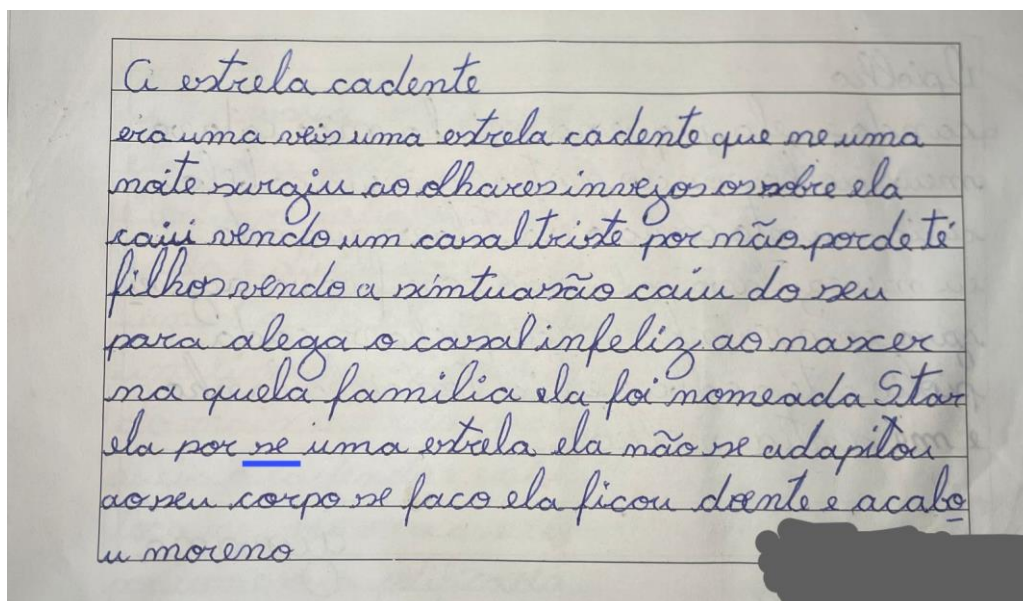 A estrela cadente
era uma veis uma estrela cadente que ne uma
noite surgiu ao olhares invejos os sobre ela
caiu vendo um casal triste por não porde té
filhos vendo a simtuasão caiu do seu
para alega o casal infeliz ao nascer
na quela familia ela foi nomeada Star
ela por se uma estrela ela não se adapitou
ao seu corpo se faco ela ficou doente e acabo
u moreno